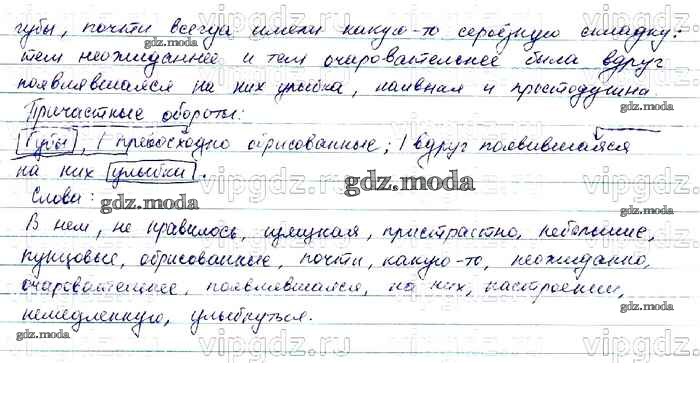 губы, почти всегда имели какую-то серьёзную складку:
тем неожиданнее и тем очаровательнее была вдруг
появлявшаяся на них улыбка, наивная и простодушна
Причастные обороты:
Губы, | превосходно обрисованные; | вдруг появившаяся
на них улыбки.
Слова:
В нем, не нравилось, изящная, пристрастно, небольшие,
пунцовые, обрисованные, почти, какую-то, неожиданно,
очаровательнее, появлявшаяся, на них, настроении,
немедленную, улыбнуться.
gdz.moda
vipgdz.ru